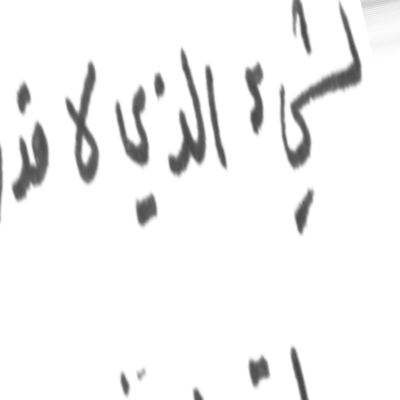 لشيء الذي لا قد